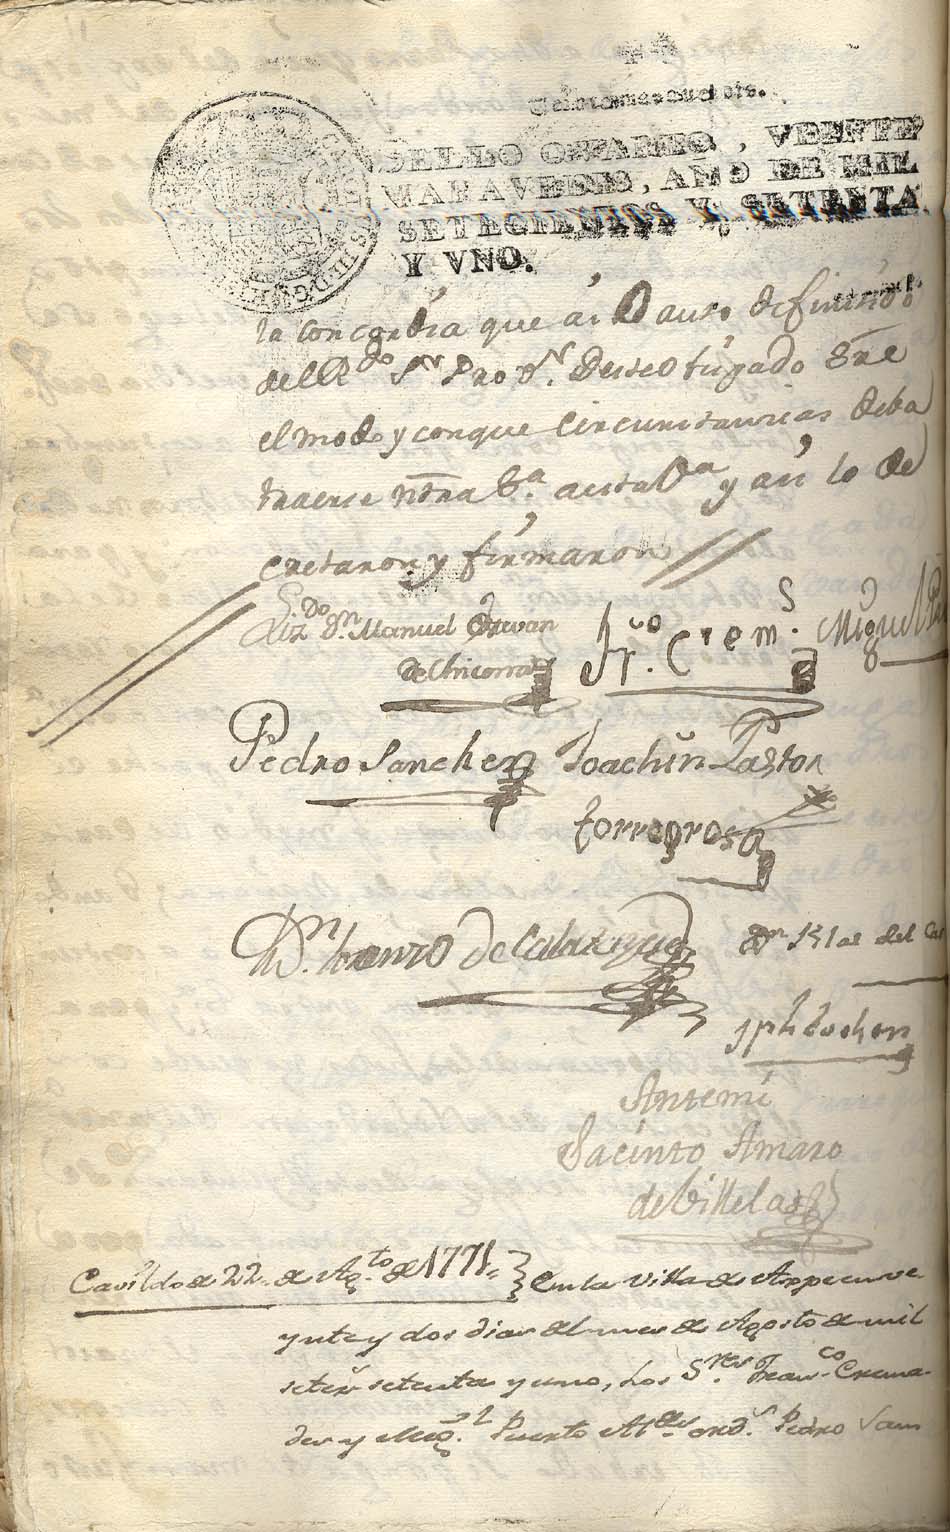 SELLO QVARTO, VEINTE
MARAVEDIS, AÑO DE MIL
SETECIENTOS Y SETENTA
Y VNO.
la concordia que ai O auto difinitibo
del Rdo Sr Pror. Deste Obispado Sre
el modo y conque Circunstancias deba
traerse ntra Sa. a esta Va y asi lo de
cretaron y firmaron
Lizdo Dn. Manuel Estevan
Frco. Crems. Miguel
Pedro Sanchez Joachin Pastor
torregrosa
Dn. Lorenzo de Calatayud Dn Blas del
Jph
Antemi
Jacinto Amaro
de Villela
Cavildo de 22 de Agto de 1771. En la Villa de Aspe en ve
ynte y dos dias del mes de Agosto de mil
seter setenta y uno, Los Sres. Franco Crema
des y Migl. Puerto Aldes ords Pedro San